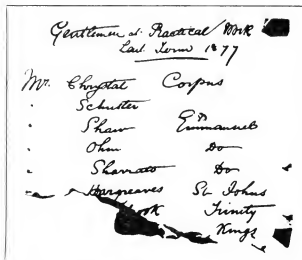 Gentlemen at Practical Work
Last Term 1877
Mr. Chrystal Corpus
" Schuster
" Shaw Emmanuel
" Ohm Do
" Sharratt Do
" Hargreaves St Johns
Trinity
Kings